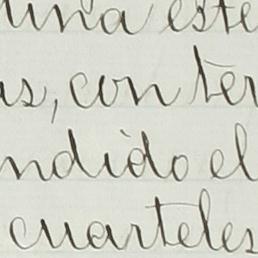 una este
as, con ter
ndido el
cuarteles